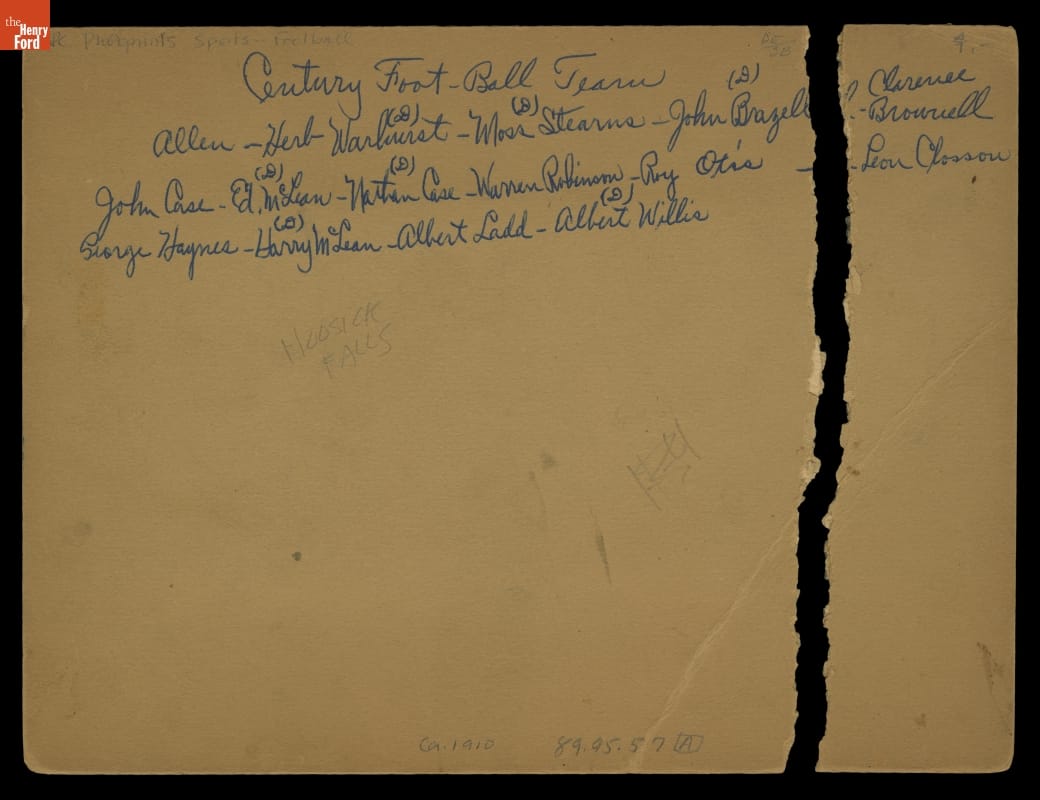 the Henry Ford
Photoprints Sports-Football
4.-
Century Foot-Ball Team
(D) Clarence
Allen - Herb Warhurst (D) - Moss Stearns (D) - John Brazell - Brownell
John Case - Ed. McLean (D) - Nathan Case (D) - Warren Robinson - Roy Otis - Leon Closson
George Haynes - Harry McLean (D) - Albert Ladd - Albert Willis (D)
HOOSICK
FALLS
Ca. 1910 89.95.57 A